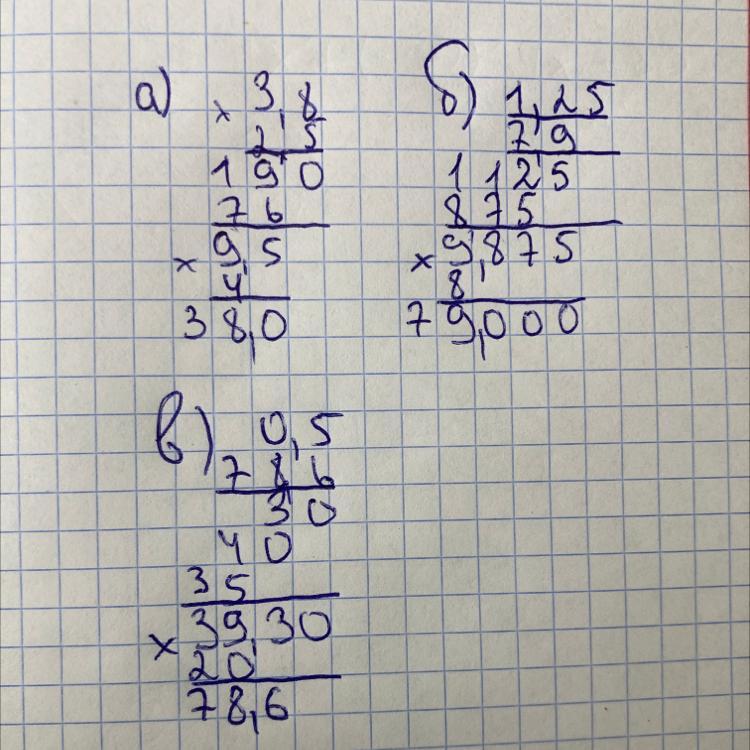 а)
× 3,8
2,5
190
76
9,5
× 4
38,0
б)
1,25
7,9
1125
875
9,875
× 8
79,000
в)
0,5
78,6
30
40
35
39,30
× 20
78,6